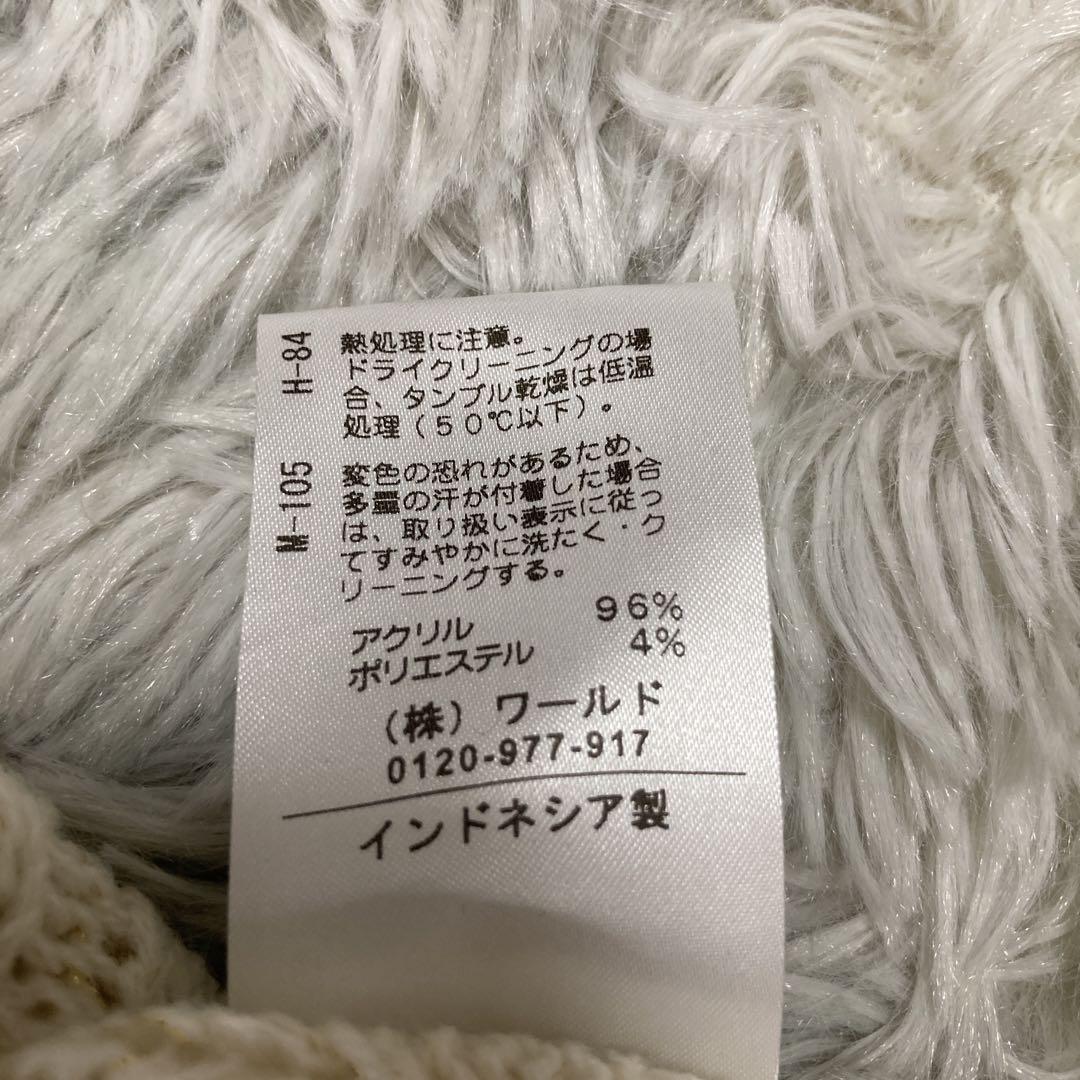 H-84
熱処理に注意。
ドライクリーニングの場
合、タンブル乾燥は低温
処理(50℃以下)。
M-105
変色の恐れがあるため、
多量の汗が付着した場合
は、取り扱い表示に従っ
てすみやかに洗たく・ク
リーニングする。
アクリル 96%
ポリエステル 4%
(株)ワールド
0120-977-917
インドネシア製